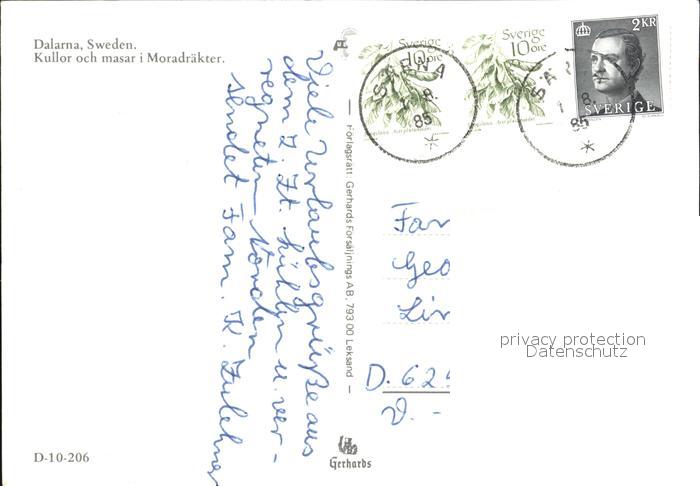 Dalarna, Sweden.
Kullor och masar i Moradräkter.
Viele Urlaubsgrüße aus
dem z. Zt. kühlen u. ver-
regneten Norden
sendet Fam. K.
Förlagsrätt: Gerhards Försäljnings AB, 793 00 Leksand
Sverige
10 öre
Sverige
10 öre
2 KR
SVERIGE
SÄRNA
1 8.
85
SÄR
1 8.
85
Far
Geo
Lir
D. 62
privacy protection
Datenschutz
D-10-206
Gerhards